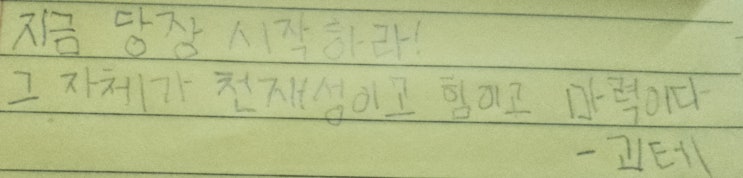 지금 당장 시작하라!
그 자체가 천재성이고 힘이고 마력이다
- 괴테